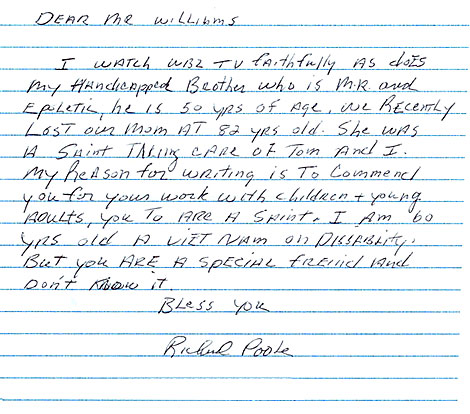 DEAR MR Williams
I WATCH WBZ TV faithfully AS does
my Handicapped Brother who is M.R. and
Epiletic, he is 50 yrs of age, we Recently
Lost our Mom AT 82 yrs old. She was
A Saint Taking care of Tom And I.
My Reason for writing is To Commend
you for your work with children + young
Adults, you To are A Saint. I Am 60
yrs old A VIET NAM on Dissability.
But you ARE A special freind and
Don't know it.
Bless you
Richard Poole